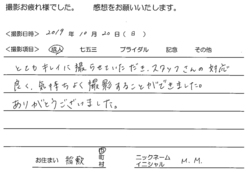 撮影お疲れ様でした。 感想をお願いいたします。
<撮影日時> 2019年 10月 20日(日)
<撮影項目> 成人 七五三 ブライダル 記念 その他
とてもキレイに撮らせていただき、スタッフさんの対応
良く、気持ちよく撮影することができました。
ありがとうございました。
お住まい 稲敷 市町村 ニックネーム イニシャル M.M.